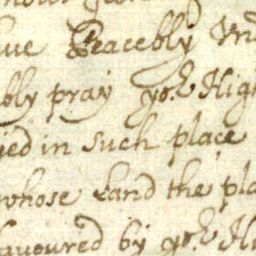 ue Peacebly Vn
bly pray yor High
ied in such place
whose Land the pla
favoured by yor Hi